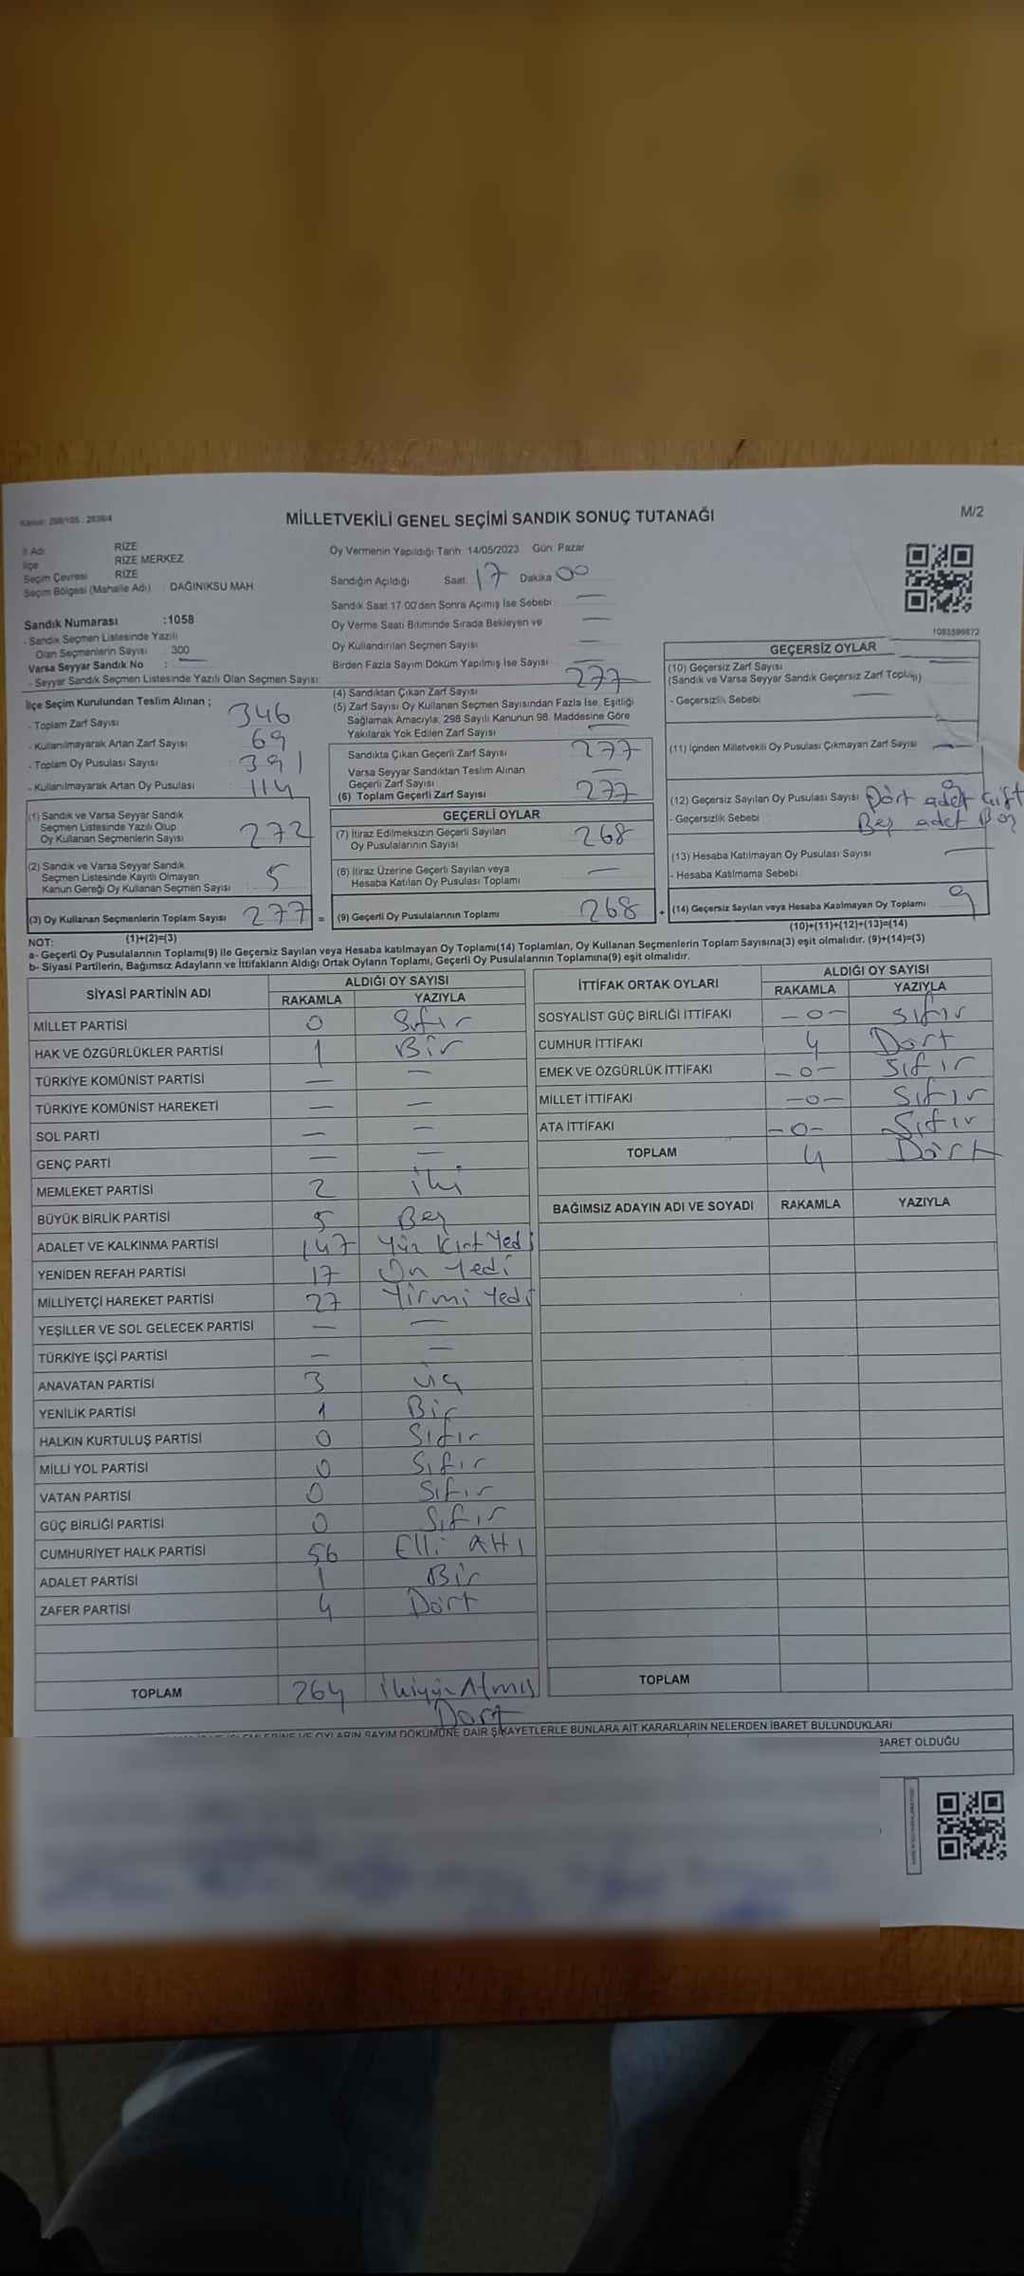 Kanun: 298/105 : 2839/4
MİLLETVEKİLİ GENEL SEÇİMİ SANDIK SONUÇ TUTANAĞI
M/2
İl Adı RİZE
İlçe RİZE MERKEZ
Seçim Çevresi RİZE
Seçim Bölgesi (Mahalle Adı) : DAĞINIKSU MAH
Sandık Numarası :1058
- Sandık Seçmen Listesinde Yazılı
Olan Seçmenlerin Sayısı : 300
Varsa Seyyar Sandık No : —
- Seyyar Sandık Seçmen Listesinde Yazılı Olan Seçmen Sayısı:
Oy Vermenin Yapıldığı Tarih: 14/05/2023 Gün: Pazar
Sandığın Açıldığı Saat: 17 Dakika 00
Sandık Saat 17:00'den Sonra Açımış İse Sebebi: —
Oy Verme Saati Bitiminde Sırada Bekleyen ve —
Oy Kullandırılan Seçmen Sayısı —
Birden Fazla Sayım Döküm Yapılmış İse Sayısı —
1083599872
İlçe Seçim Kurulundan Teslim Alınan ;
- Toplam Zarf Sayısı 346
- Kullanılmayarak Artan Zarf Sayısı 69
- Toplam Oy Pusulası Sayısı 391
- Kullanılmayarak Artan Oy Pusulası 114
(1) Sandık ve Varsa Seyyar Sandık
Seçmen Listesinde Yazılı Olup
Oy Kullanan Seçmenlerin Sayısı 272
(2) Sandık ve Varsa Seyyar Sandık
Seçmen Listesinde Kayıtlı Olmayan
Kanun Gereği Oy Kullanan Seçmen Sayısı 5
(3) Oy Kullanan Seçmenlerin Toplam Sayısı 277 =
(1)+(2)=(3)
(4) Sandıktan Çıkan Zarf Sayısı 277
(5) Zarf Sayısı Oy Kullanan Seçmen Sayısından Fazla İse, Eşitliği
Sağlamak Amacıyla, 298 Sayılı Kanunun 98. Maddesine Göre
Yakılarak Yok Edilen Zarf Sayısı —
Sandıkta Çıkan Geçerli Zarf Sayısı 277
Varsa Seyyar Sandıktan Teslim Alınan
Geçerli Zarf Sayısı —
(6) Toplam Geçerli Zarf Sayısı 277
GEÇERLİ OYLAR
(7) İtiraz Edilmeksizin Geçerli Sayılan
Oy Pusulalarının Sayısı 268
(8) İtiraz Üzerine Geçerli Sayılan veya
Hesaba Katılan Oy Pusulası Toplamı —
(9) Geçerli Oy Pusulalarının Toplamı 268 +
GEÇERSİZ OYLAR
(10) Geçersiz Zarf Sayısı
(Sandık ve Varsa Seyyar Sandık Geçersiz Zarf Toplamı)
- Geçersizlik Sebebi —
(11) İçinden Milletvekili Oy Pusulası Çıkmayan Zarf Sayısı —
(12) Geçersiz Sayılan Oy Pusulası Sayısı 9 Dört adet çift
- Geçersizlik Sebebi Beş adet Boş
(13) Hesaba Katılmayan Oy Pusulası Sayısı —
- Hesaba Katılmama Sebebi
(14) Geçersiz Sayılan veya Hesaba Katılmayan Oy Toplamı 9
(10)+(11)+(12)+(13)=(14)
NOT:
a- Geçerli Oy Pusulalarının Toplamı(9) ile Geçersiz Sayılan veya Hesaba katılmayan Oy Toplamı(14) Toplamları, Oy Kullanan Seçmenlerin Toplam Sayısına(3) eşit olmalıdır. (9)+(14)=(3)
b- Siyasi Partilerin, Bağımsız Adayların ve İttifakların Aldığı Ortak Oyların Toplamı, Geçerli Oy Pusulalarının Toplamına(9) eşit olmalıdır.
SİYASİ PARTİNİN ADI ALDIĞI OY SAYISI
RAKAMLA YAZIYLA
MİLLET PARTİSİ 0 Sıfır
HAK VE ÖZGÜRLÜKLER PARTİSİ 1 Bir
TÜRKİYE KOMÜNİST PARTİSİ — —
TÜRKİYE KOMÜNİST HAREKETİ — —
SOL PARTİ — —
GENÇ PARTİ — —
MEMLEKET PARTİSİ 2 iki
BÜYÜK BİRLİK PARTİSİ 5 Beş
ADALET VE KALKINMA PARTİSİ 147 Yüz Kırk Yedi
YENİDEN REFAH PARTİSİ 17 On Yedi
MİLLİYETÇİ HAREKET PARTİSİ 27 Yirmi Yedi
YEŞİLLER VE SOL GELECEK PARTİSİ — —
TÜRKİYE İŞÇİ PARTİSİ — —
ANAVATAN PARTİSİ 3 üç
YENİLİK PARTİSİ 1 Bir
HALKIN KURTULUŞ PARTİSİ 0 Sıfır
MİLLİ YOL PARTİSİ 0 Sıfır
VATAN PARTİSİ 0 Sıfır
GÜÇ BİRLİĞİ PARTİSİ 0 Sıfır
CUMHURİYET HALK PARTİSİ 56 Elli Altı
ADALET PARTİSİ 1 Bir
ZAFER PARTİSİ 4 Dört
TOPLAM 264 İkiyüz Atmış
Dört
İTTİFAK ORTAK OYLARI ALDIĞI OY SAYISI
RAKAMLA YAZIYLA
SOSYALİST GÜÇ BİRLİĞİ İTTİFAKI -0- Sıfır
CUMHUR İTTİFAKI 4 Dört
EMEK VE ÖZGÜRLÜK İTTİFAKI -0- Sıfır
MİLLET İTTİFAKI -0- Sıfır
ATA İTTİFAKI -0- Sıfır
TOPLAM 4 Dört
BAĞIMSIZ ADAYIN ADI VE SOYADI RAKAMLA YAZIYLA
TOPLAM
OYLARIN SAYIM DÖKÜMÜNE DAİR ŞİKAYETLERLE BUNLARA AİT KARARLARIN NELERDEN İBARET BULUNDUKLARI
BARET OLDUĞU